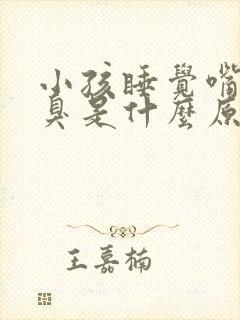 小孩睡覺嘴
臭是什麼原
王嘉楠